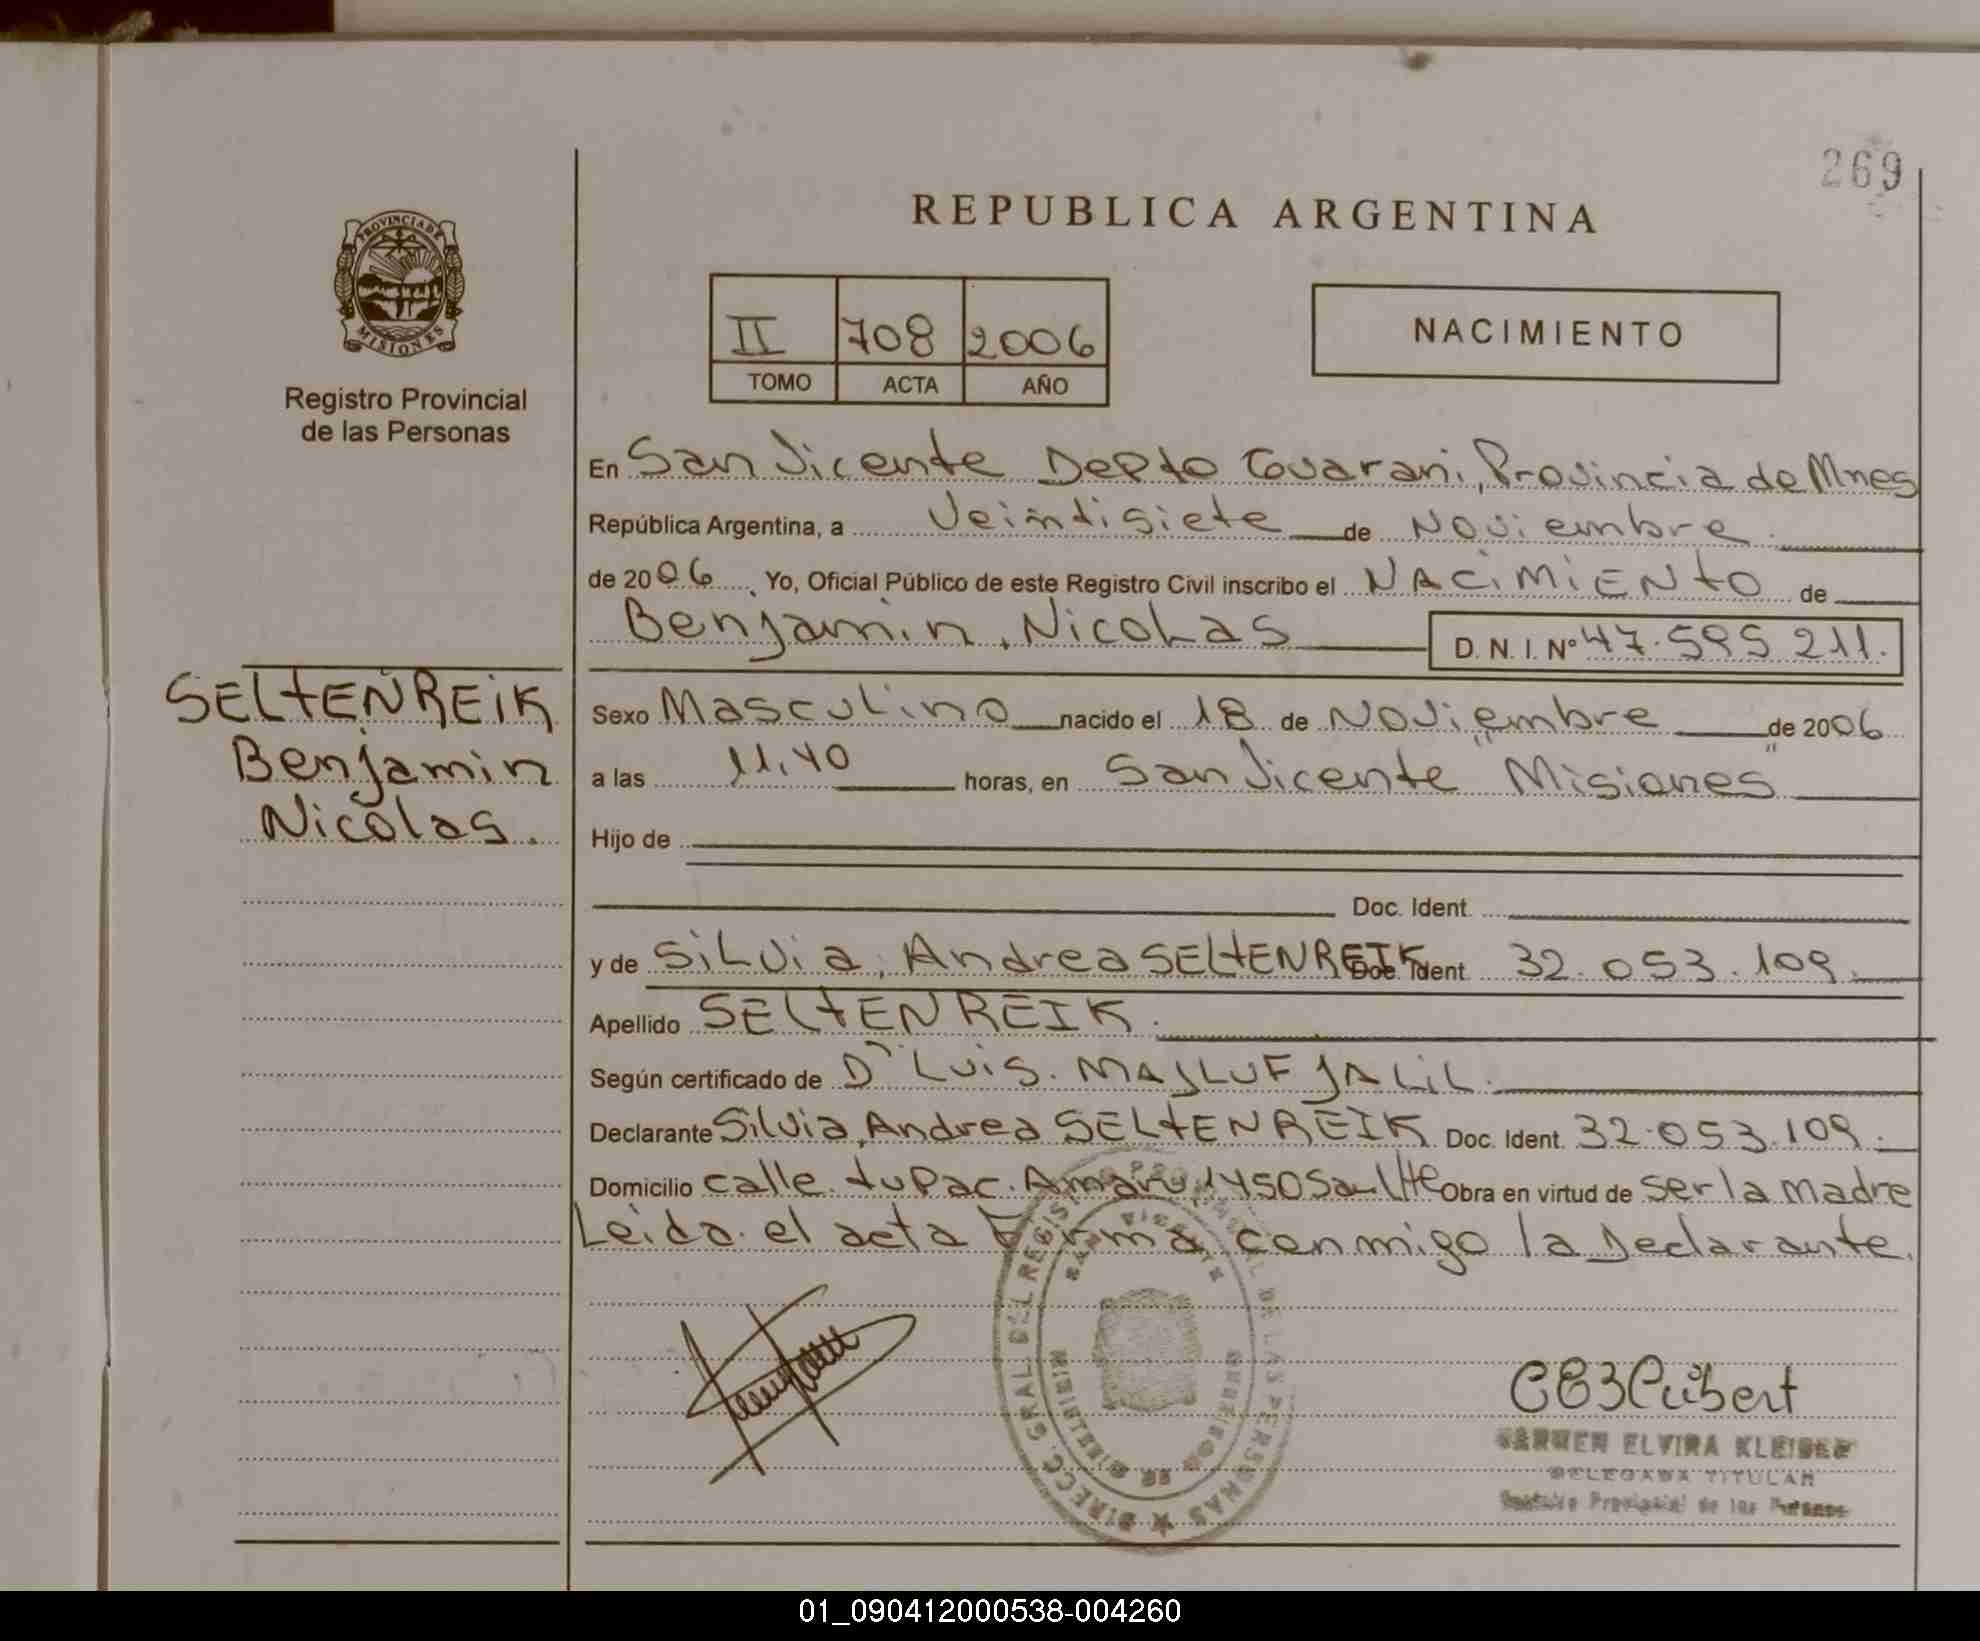 269
PROVINCIA DE
MISIONES
Registro Provincial
de las Personas
REPUBLICA ARGENTINA
II 708 2006
TOMO ACTA AÑO
NACIMIENTO
En San Vicente Depto Guarani, Provincia de Mnes
República Argentina, a Veintisiete de Noviembre
de 2006. Yo, Oficial Público de este Registro Civil inscribo el NACIMIENTO de
Benjamin, Nicolas D. N. I. Nº 47.595 211.
SELTENREIK
Benjamin
Nicolas.
Sexo Masculino nacido el 18 de Noviembre de 2006
a las 11,40 horas, en San Vicente "Misiones"
Hijo de
Doc. Ident.
y de Silvia, Andrea SELTENREIK Doc. Ident 32.053.109.
Apellido SELTENREIK.
Según certificado de Dr Luis. MASLUF JALIL.
Declarante Silvia, Andrea SELTENREIK Doc. Ident. 32.053.109.
Domicilio calle tupac. Amaru 1450 San Vte Obra en virtud de ser la madre
Leida el acta Firma conmigo la Declarante.
DIRECC. GRAL. DEL REGISTRO PROVINCIAL DE LAS PERSONAS
CARMEN ELVIRA
DELEGADA TITULAR
Registro Provincial de las Personas
01_090412000538-004260